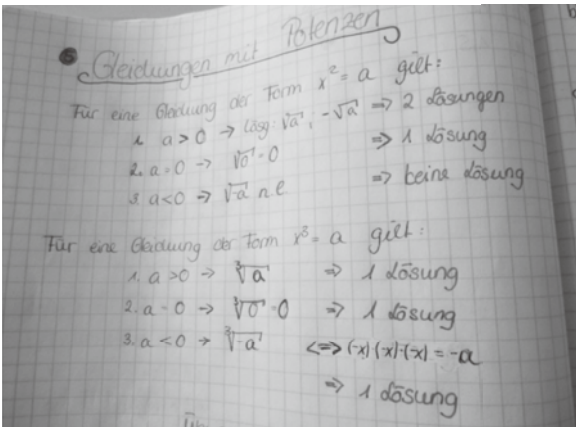 Gleichungen mit Potenzen
Für eine Gleichung der Form x² = a gilt:
1. a > 0 → Lösg: √a ; -√a ⇒ 2 Lösungen
2. a = 0 → √0 = 0 ⇒ 1 Lösung
3. a < 0 → √-a n.l ⇒ keine Lösung
Für eine Gleichung der Form x³ = a gilt:
1. a > 0 → ∛a ⇒ 1 Lösung
2. a = 0 → ∛0 = 0 ⇒ 1 Lösung
3. a < 0 → ∛-a <=> (-x)·(x)·(-x) = -a
⇒ 1 Lösung